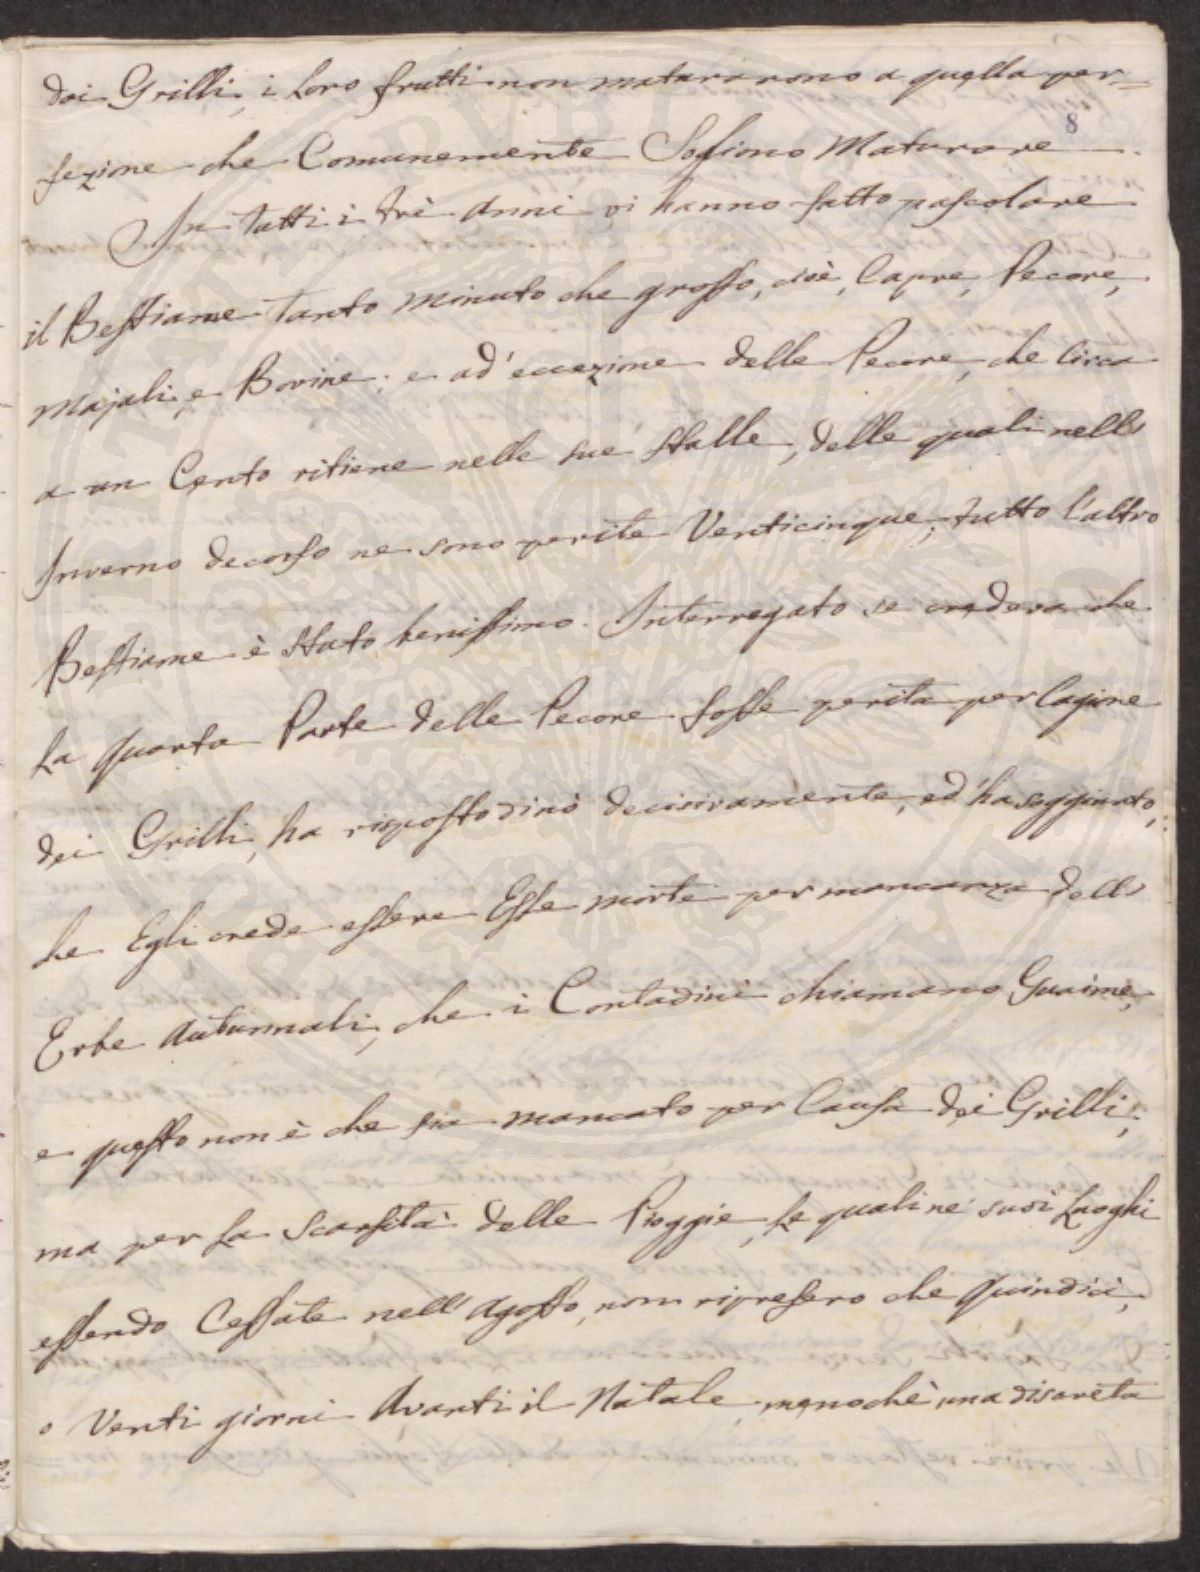 dai Grilli, i Loro frutti non maturarono a quella per=
8
fezione che Comunemente Sogliono Maturare.
In tutti i trè Anni vi hanno fatto pascolare
il Bestiame tanto Minuto che grosso, cioè, Capre, Pecore,
Majali, e Bovine; e ad' eccezione delle Pecore, che Circa
a un Cento ritiene nelle sue Stalle, delle quali nell'
Inverno decorso ne sono perite Venticinque, tutto l'altro
Bestiame è Stato benissimo. Interregato se credeva che
La quarta Parte delle Pecore fosse perita per Cagione
dei Grilli, ha risposto di nò decisivamente, ed' ha soggiunto,
che Egli crede essere Esse morte per mancanza dell'
Erbe Autunnali, che i Contadini chiamano Guaime,
e questo non è che sia mancato per Causa dei Grilli;
ma per La Scarsità delle Pioggie, Le quali ne' suoi Luoghi
essendo Cessate nell' Agosto, non ripresero che quindici,
o Venti giorni Avanti il Natale, menochè una discreta